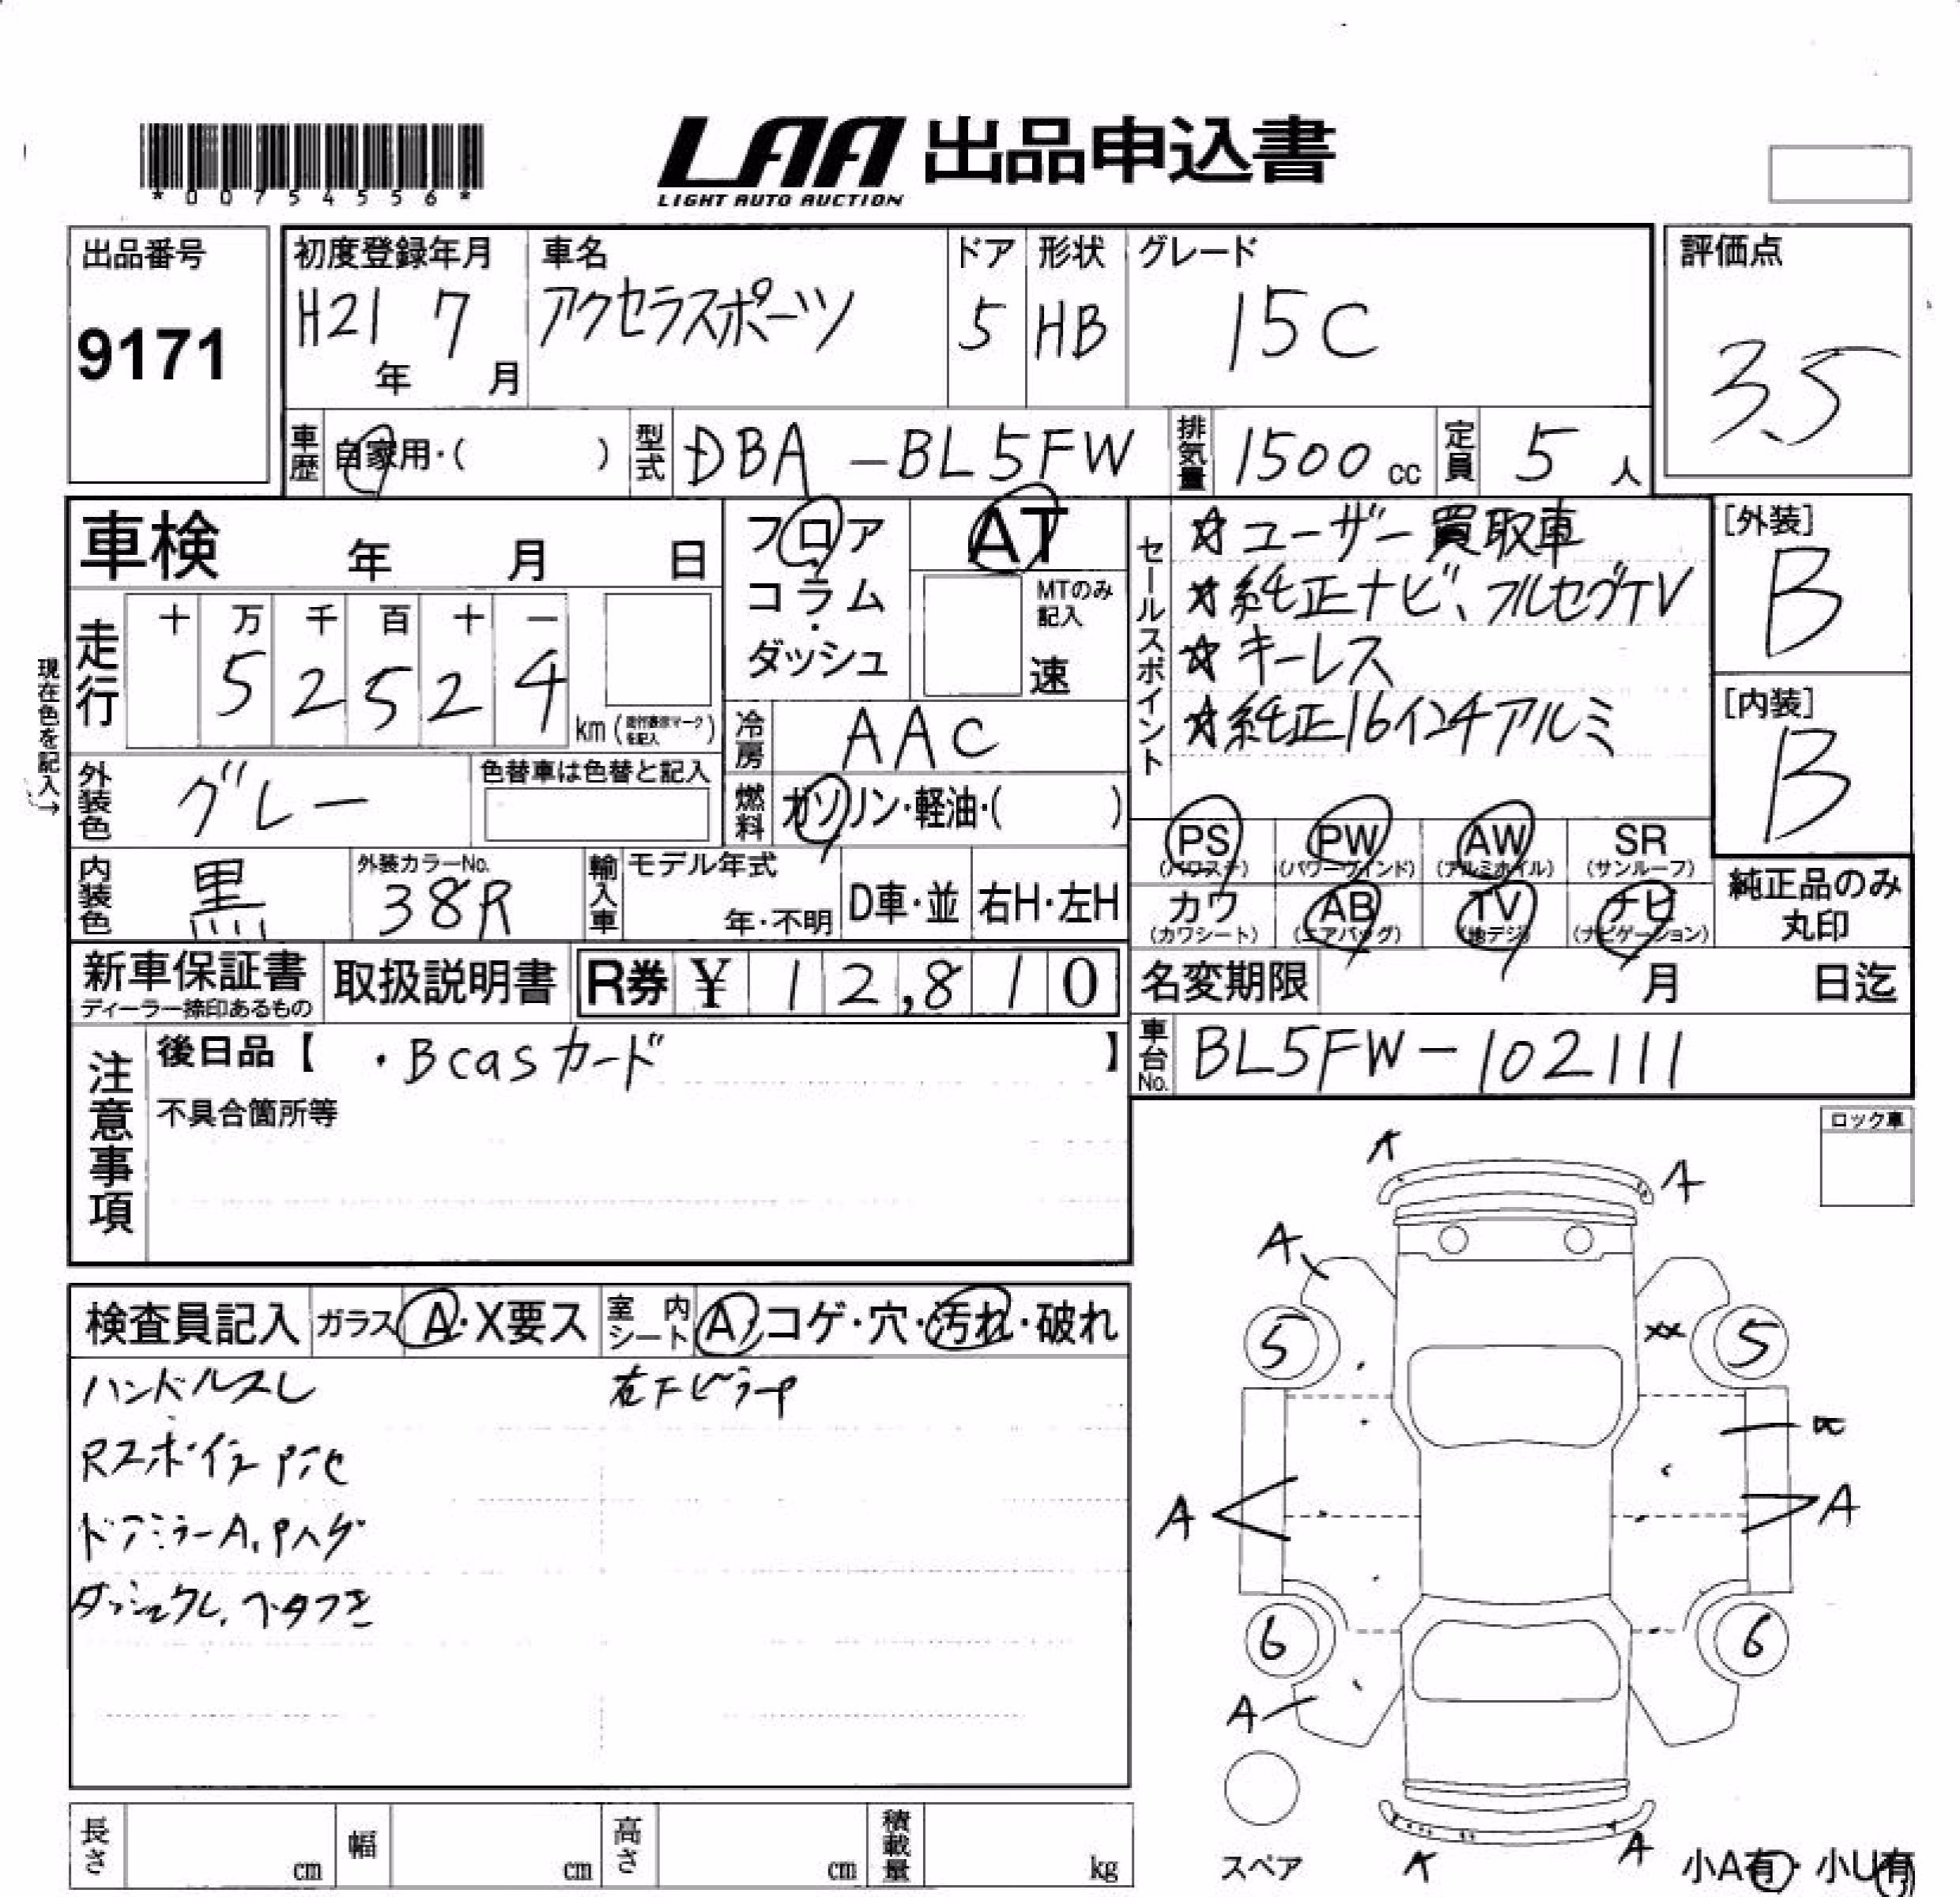 *00754556*
LAA 出品申込書
LIGHT AUTO AUCTION
出品番号
9171
初度登録年月
H21 7
年 月
車名
アクセラスポーツ
ドア
5
形状
HB
グレード
15C
評価点
3.5
車歴 自家用・( )
型式 DBA-BL5FW
排気量 1500 cc
定員 5 人
車検 年 月 日
フロア
コラム
・
ダッシュ
AT
MTのみ
記入
速
セールスポイント
☆ユーザー買取車
☆純正ナビ、フルセグTV
☆キーレス
☆純正16インチアルミ
[外装]
B
[内装]
B
現在色を記入→
走行
十 万 千 百 十 一
5 2 5 2 4
km
冷房 AAC
外装色 グレー
色替車は色替と記入
燃料 ガソリン・軽油・( )
PS PW AW SR
(パワステ) (パワーウインド) (アルミホイル) (サンルーフ)
カワ AB TV ナビ
(カワシート) (エアバッグ) (地デジ) (ナビゲーション)
純正品のみ
丸印
内装色 黒
外装カラーNo.
38R
輸入車
モデル年式
年・不明
D車・並
右H・左H
新車保証書
ディーラー捺印あるもの
取扱説明書
R券 ¥ 12,810
名変期限 月 日迄
車台No. BL5FW-102111
注意事項
後日品【 ・Bcasカード 】
不具合箇所等
ロック車
検査員記入
ガラス A・X要ス
室内シート A・コゲ・穴・汚れ・破れ
ハンドルスレ
Rスポイラー
ドアミラーA,Pハゲ
ベタつき
A
A
A
XX
5
5
A
A
6
6
A
A
スペア
小A有・小U有
長さ cm
幅 cm
高さ cm
積載量 kg